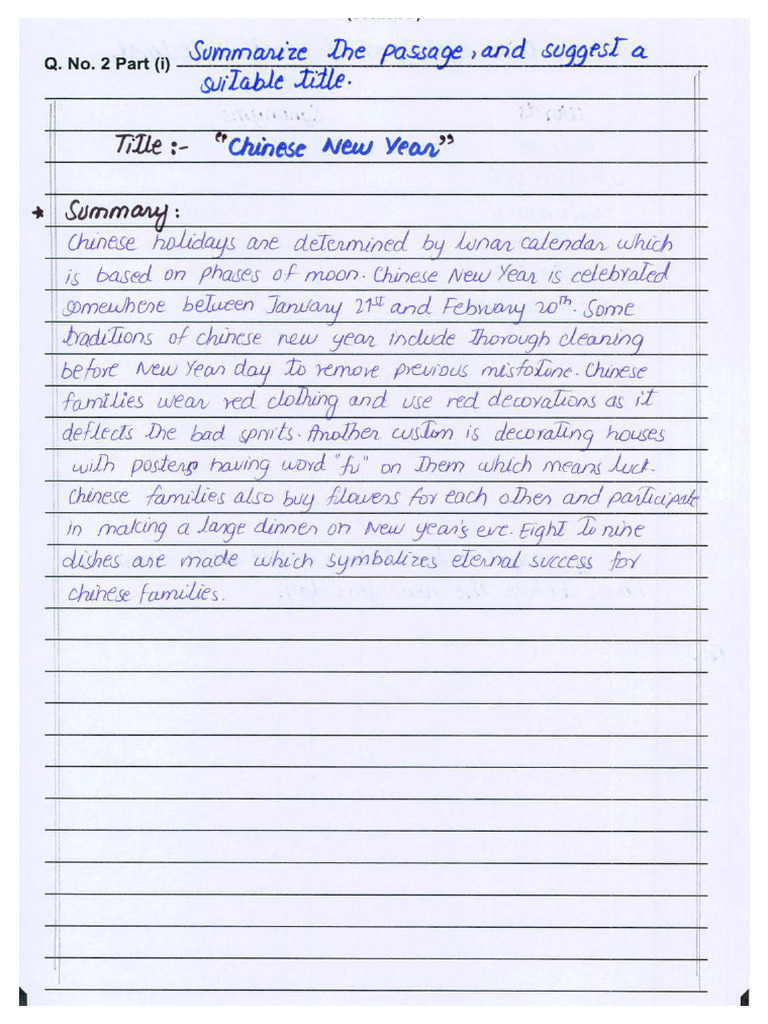 Q. No. 2 Part (i) Summarize the passage, and suggest a
suitable title.
Title :- "Chinese New Year"
* Summary:
Chinese holidays are determined by lunar calendar which
is based on phases of moon. Chinese New Year is celebrated
somewhere between January 21st and February 20th. Some
traditions of chinese new year include thorough cleaning
before New Year day to remove previous misfotune. Chinese
families wear red clothing and use red decorations as it
deflects the bad spriits. Another custom is decorating houses
with posters having word "fu" on them which means luck.
Chinese families also buy flowers for each other and participate
in making a large dinner on New year's eve. Eight to nine
dishes are made which symbolizes eternal success for
chinese families.